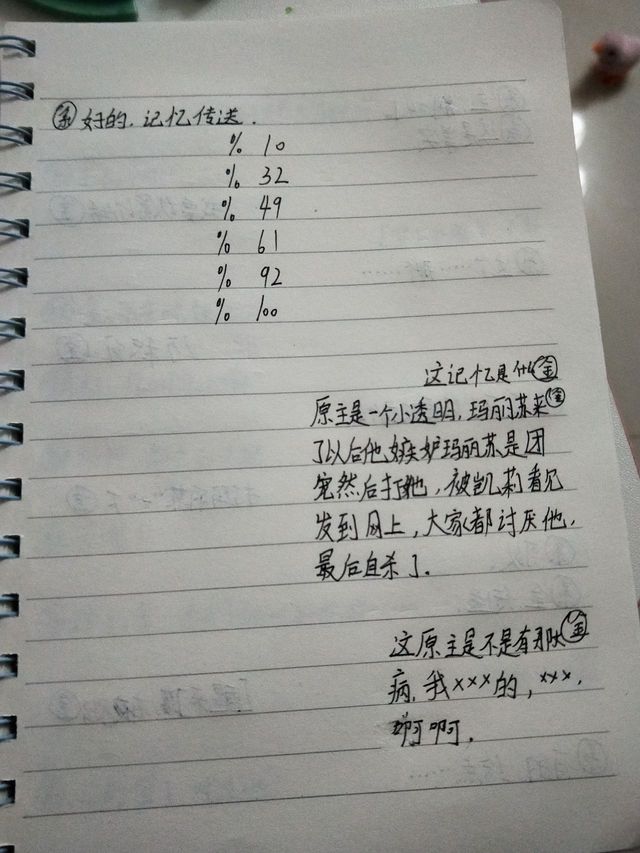 系 好的.记忆传送.
% 10
% 32
% 49
% 61
% 92
% 100
这记忆是什么 金
原主是一个小透明,玛丽苏来 金
了以后他嫉妒玛丽苏是团
宠然后打他,被凯莉看见
发到网上,大家都讨厌他,
最后自杀了.
这原主是不是有那大 金
病,我×××的,×××,
啊啊.